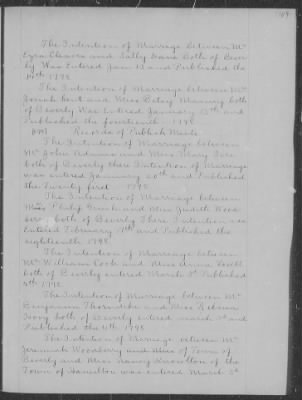 The Intention of Marriage between Mr
Ezra Cleaves and Sally Davis both of Bever
ly Was Entered Jan 13 and Published the
14th 1798
The Intention of Marriage between Mr
Josiah and Miss Betsy both
of Beverly Was Entered January 13th and
Published the fourteenth 1798
Records of Publish Ments
The Intention of Marriage between
Mr John Adams and Miss Mary
both of Beverly there Intention of Marriage
was entered January 20th and Published
the Twenty first 1798
The Intention of Marriage between
Philip and Miss Judith Wood
both of Beverly There Intention was
Entered February 17th and Published the
eighteenth 1798
The Intention of Marriage between
Mr William Cook and Miss Anna
both of Beverly entered March 3d Published
4th 1798
The Intention of Marriage between Mr
Benjamin Thorndike and Miss
both of Beverly entered March 3d and
Published the 4th 1798
The Intention of Marriage between Mr
Jeremiah Woodberry and Miss of Town of
Beverly and Miss Nancy Knowlton of the
Town of Hamilton was entered March 3d